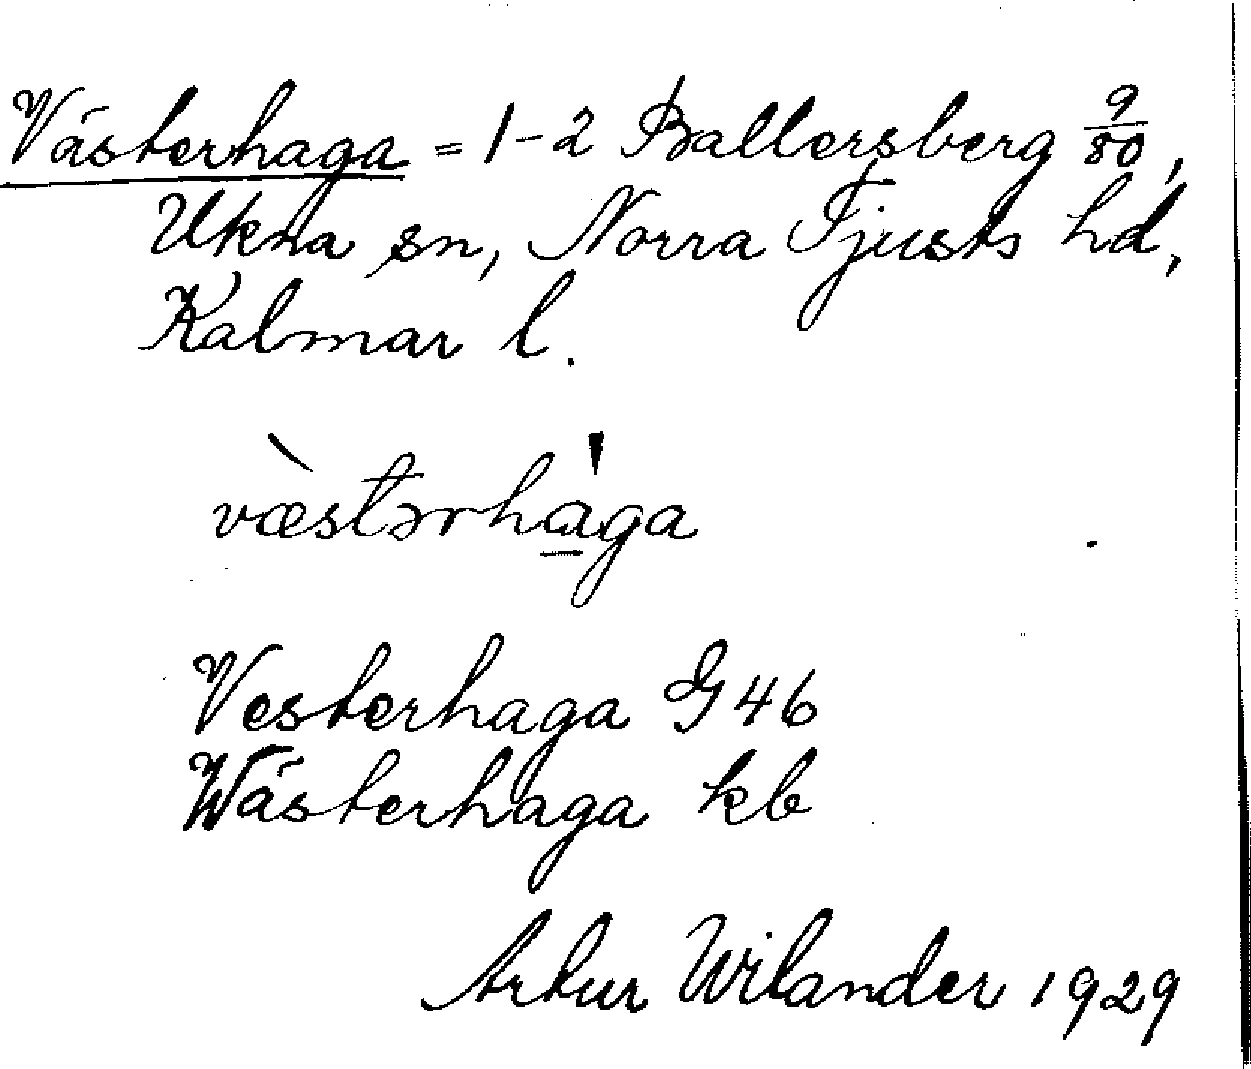 Västerhaga = 1-2 Ballersberg 9/80,
Ukna sn, Norra Tjusts hd,
Kalmar l.
væ̀stərha̲̍ga
Vesterhaga G 46
Wästerhaga kb
Artur Wilander 1929